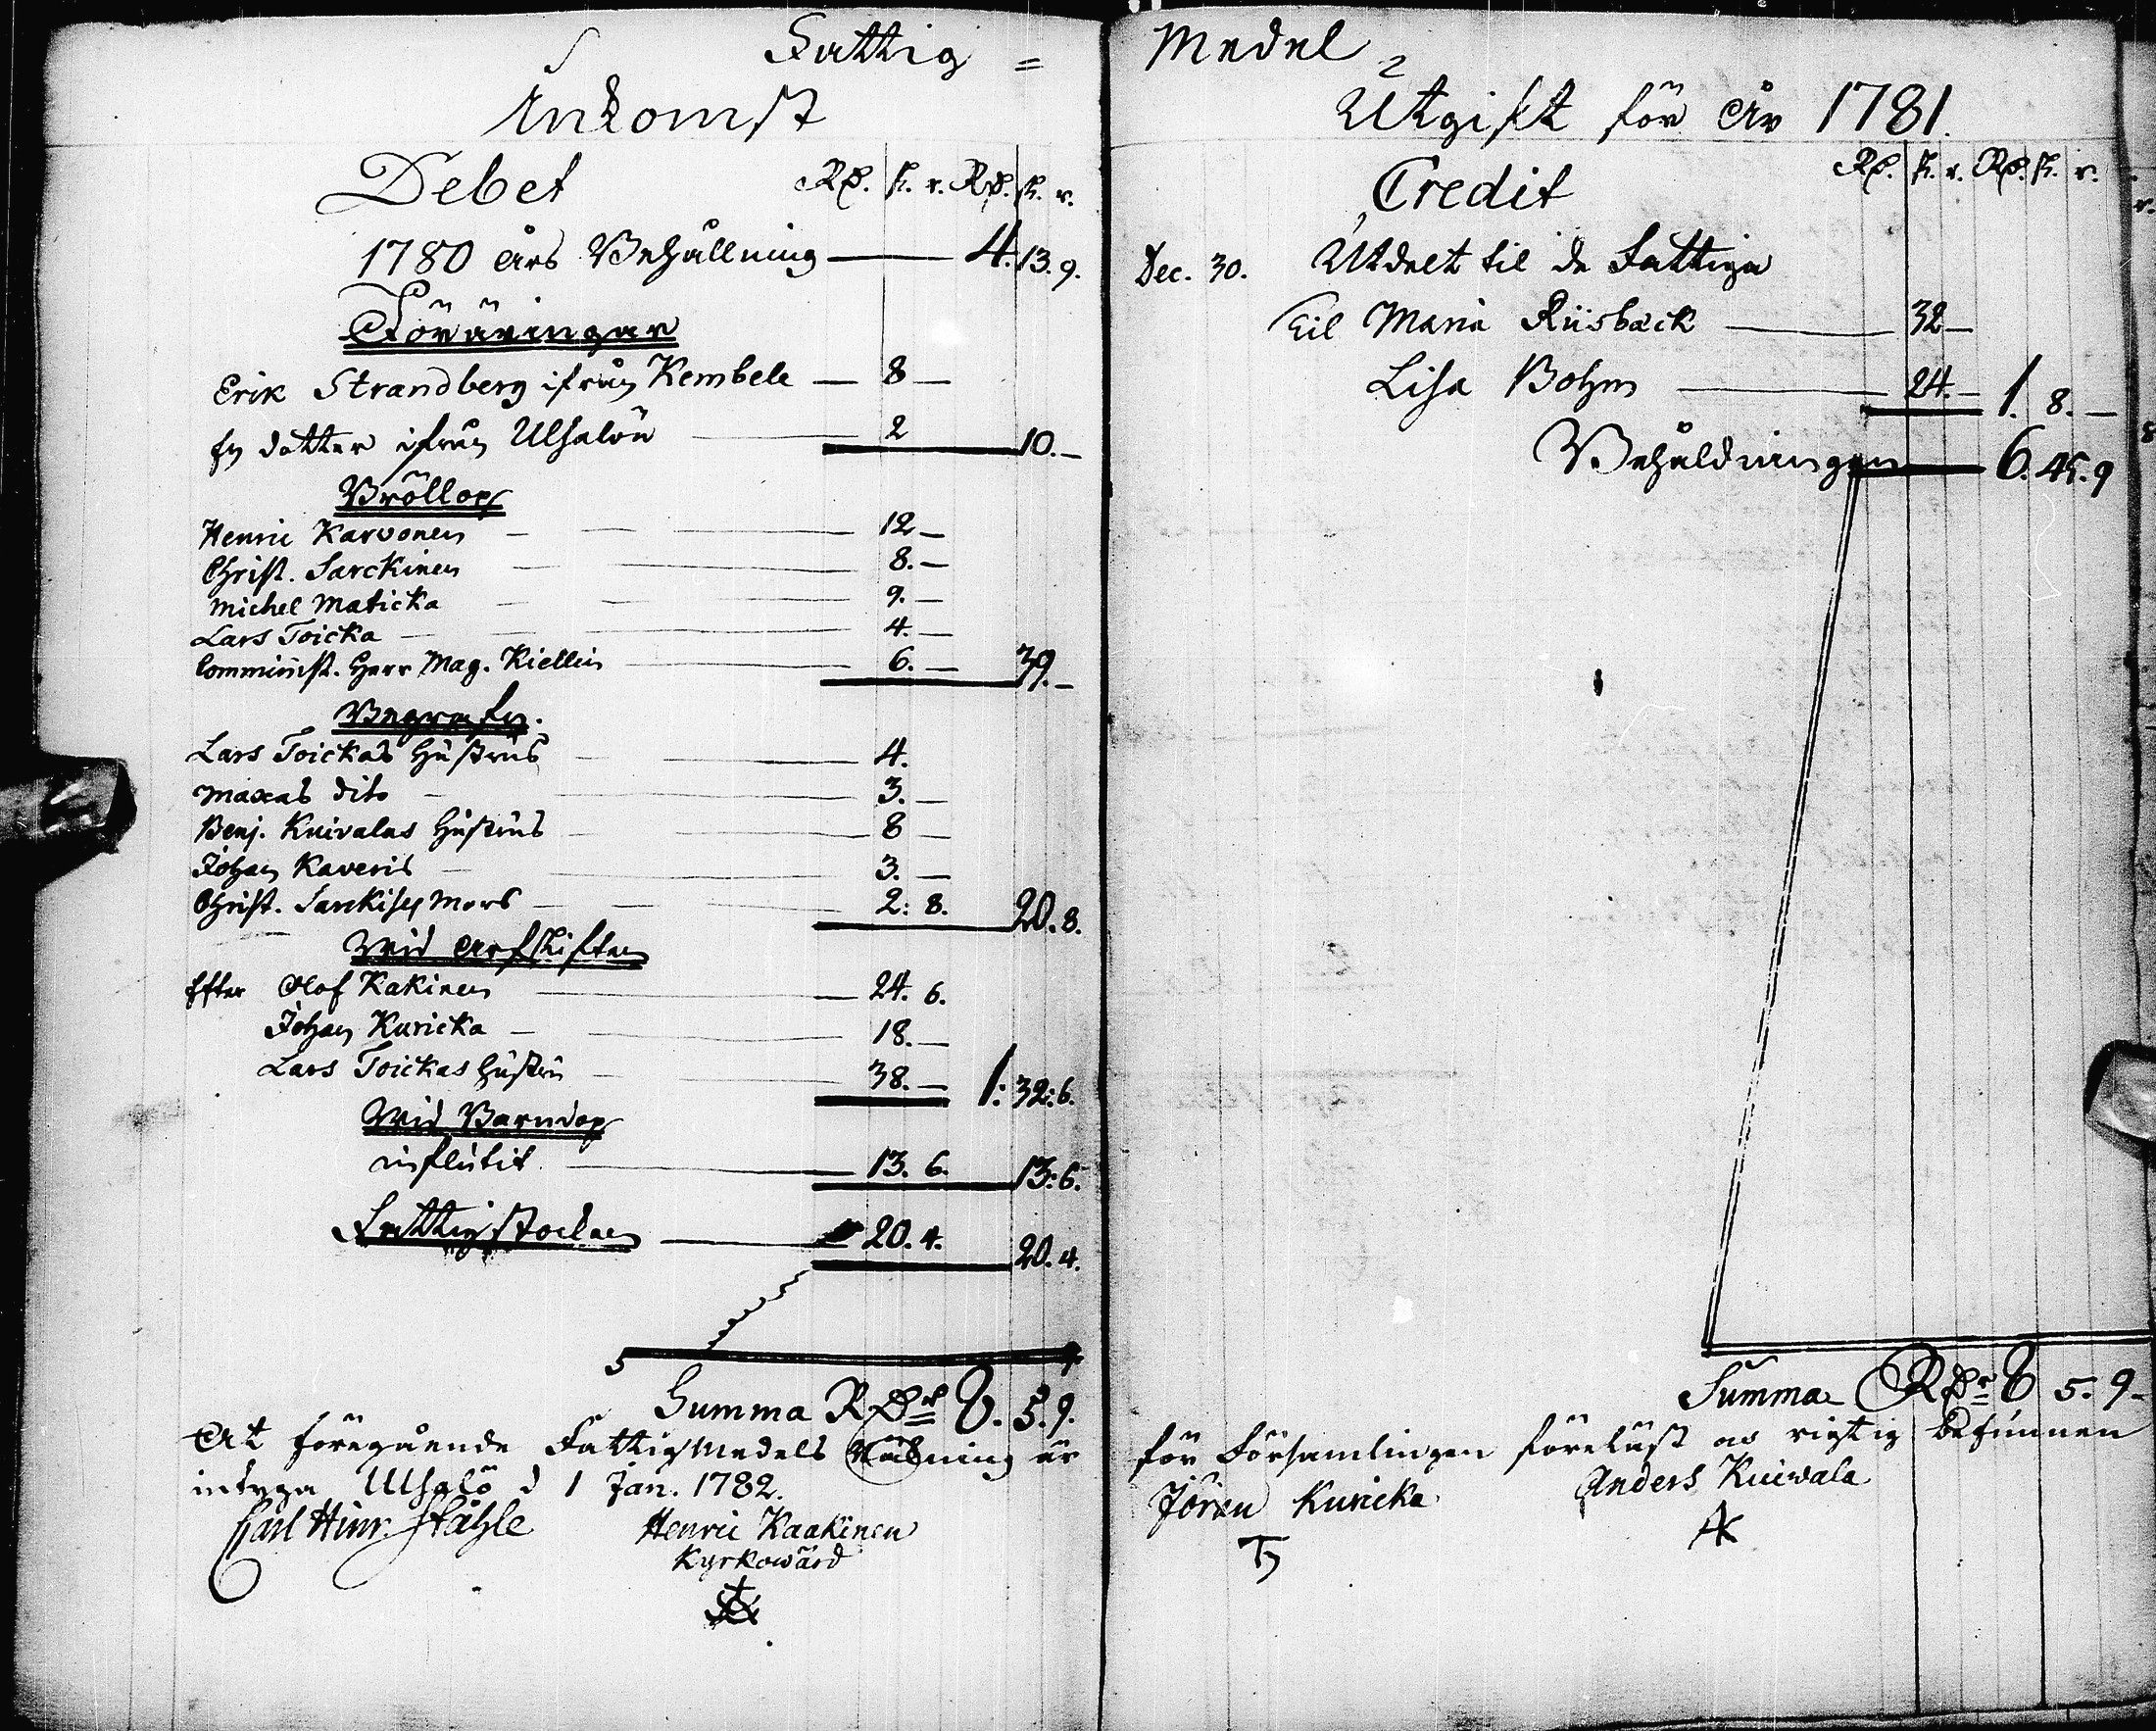 Fattig =
Inkomst
Debet Rd. sk. r. Rd. sk. r.
1780 års Behållning — 4. 13. 9.
Föräringar
Erik Strandberg ifrån Kembele — 8 —
en dotter ifrån Ulsalön — 2 10. —
Bröllop
Henric Karvonen — 12 —
Christ. Sarckinen — 8. —
Michel Maticka — 9. —
Lars Toicka — 4. —
Comminist. Herr Mag. Kiellin — 6. — 39. —
Begrafn.
Lars Toickas Hustrus — 4.
Maxas dito — 3. —
Benj. Kuivalas Hustrus — 8 —
Johan Kaveris — 3. —
Christ. Sarckisen Mors — 2: 8. 20. 8.
Wid Arfskiften
Efter Olof Kakinen — 24. 6.
Johan Kuricka — 18. —
Lars Toickas Hustru — 38. — 1: 32: 6.
Wid Barndop
influtit — 13. 6. 13: 6.
Fattigstocken — 20. 4. 20. 4.
Summa RDr 8. 5. 9.
At föregående Fattigmedels Räkning är
intyga Ulsalö d 1 Jan. 1782.
Carl Hinr. Ståhle Henric Kaakinen
Kyrkowärd
Medel
Utgift för År 1781.
Credit Rd. sk. r. Rd. sk. r.
Dec. 30. Utdelt til de Fattiga
Til Maria Riisback — 32 —
Lisa Bohm — 24. — 1. 8. —
Behåldningen 6. 45. 9
Summa RDr 8 5. 9.
för Församlingen föreläst oc rigtig befunnen
Jöran Kuricka Anders Kuivala